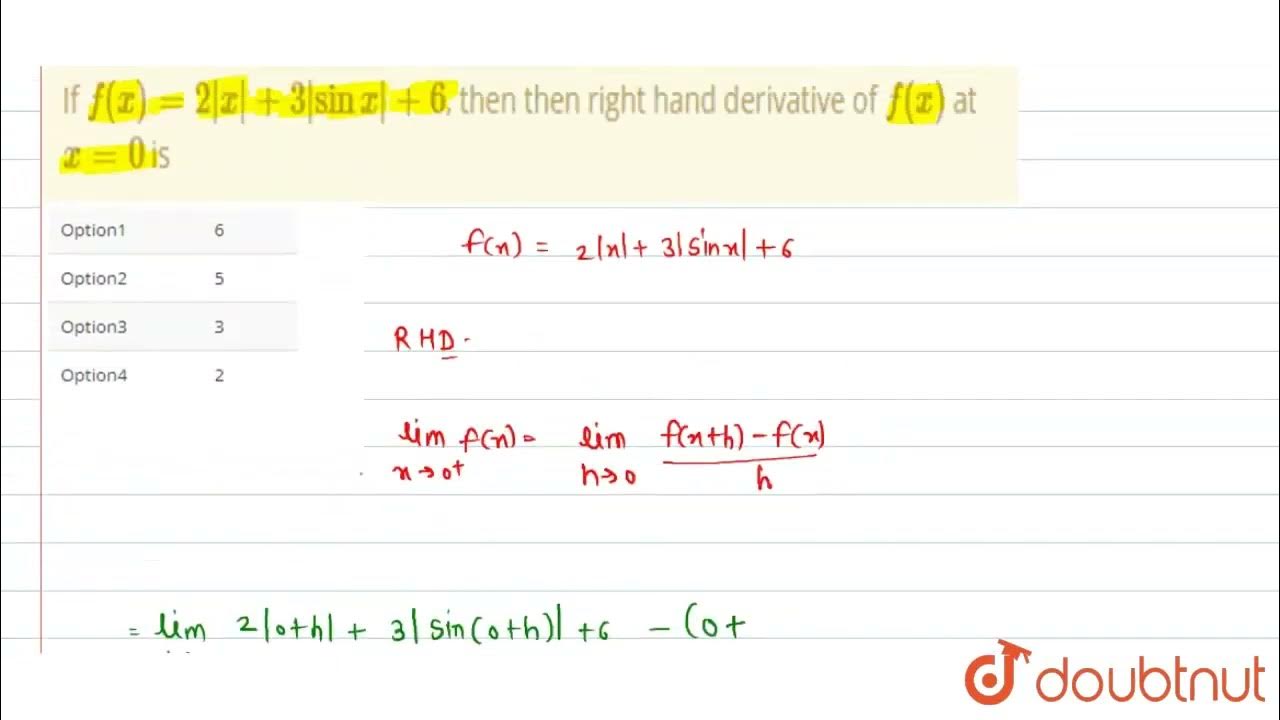 If f(x) = 2|x| + 3|sin x| + 6, then then right hand derivative of f(x) at
x = 0 is
Option1 6
Option2 5
Option3 3
Option4 2
f(x) = 2|x| + 3|sinx| + 6
RHD.
lim f(x) = lim f(x+h) - f(x)
x→0+ h→0 h
= lim 2|0+h| + 3|sin(0+h)| + 6 - (0+
doubtnut